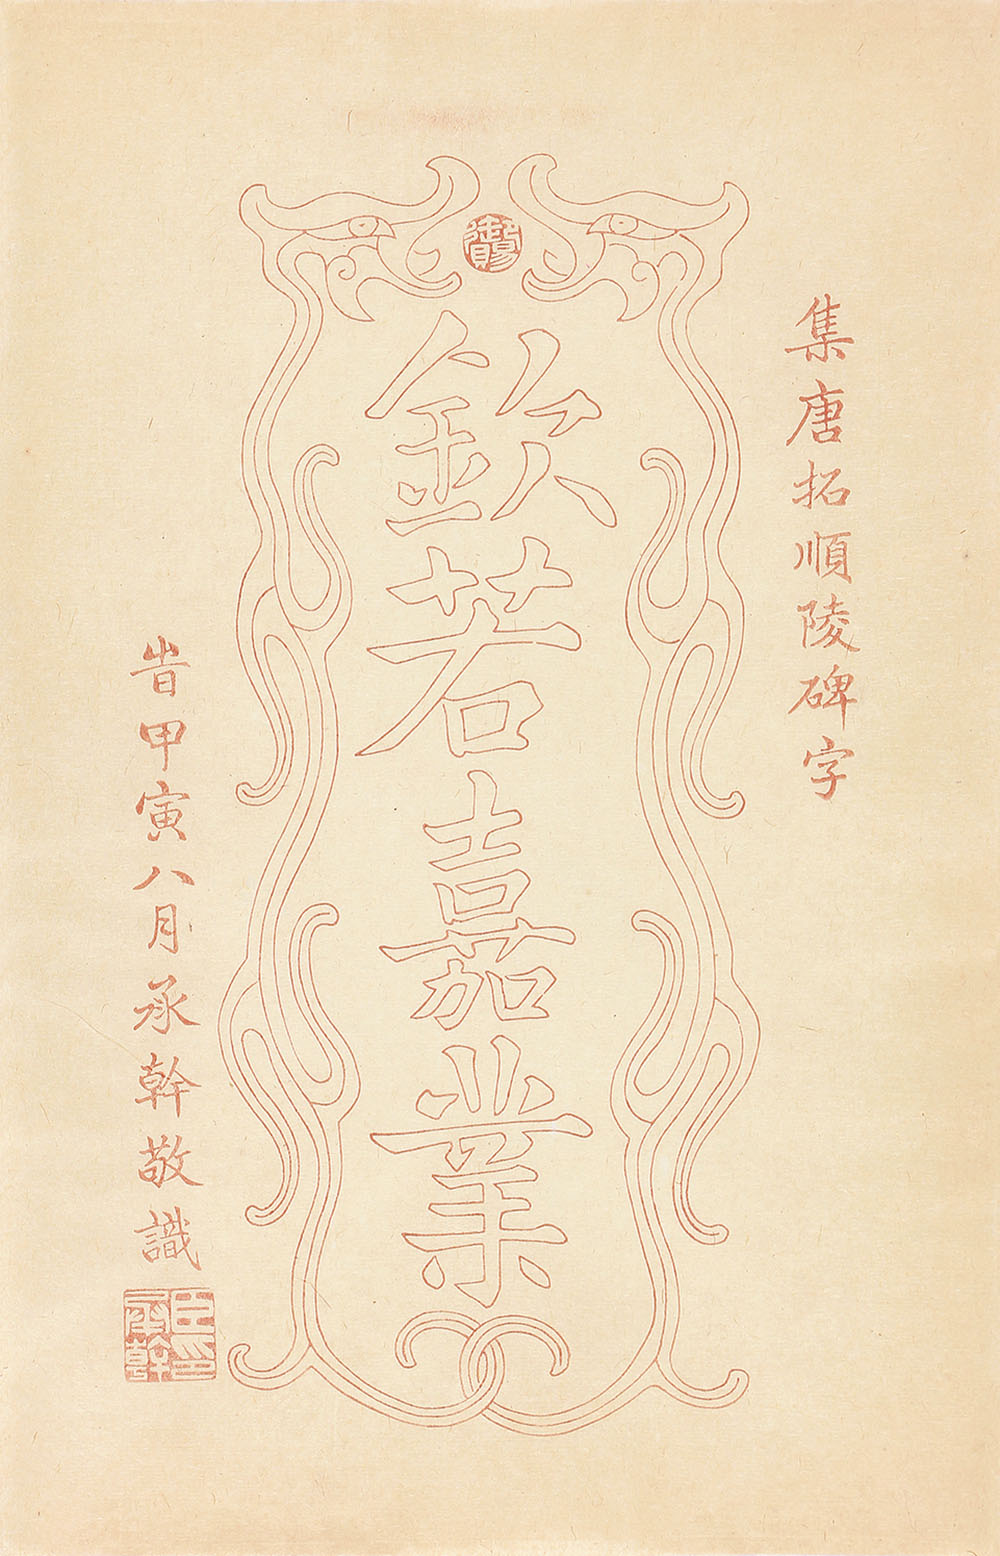 集唐拓順陵碑字
御賜
欽若嘉業
旹甲寅八月承幹敬識
臣承幹印